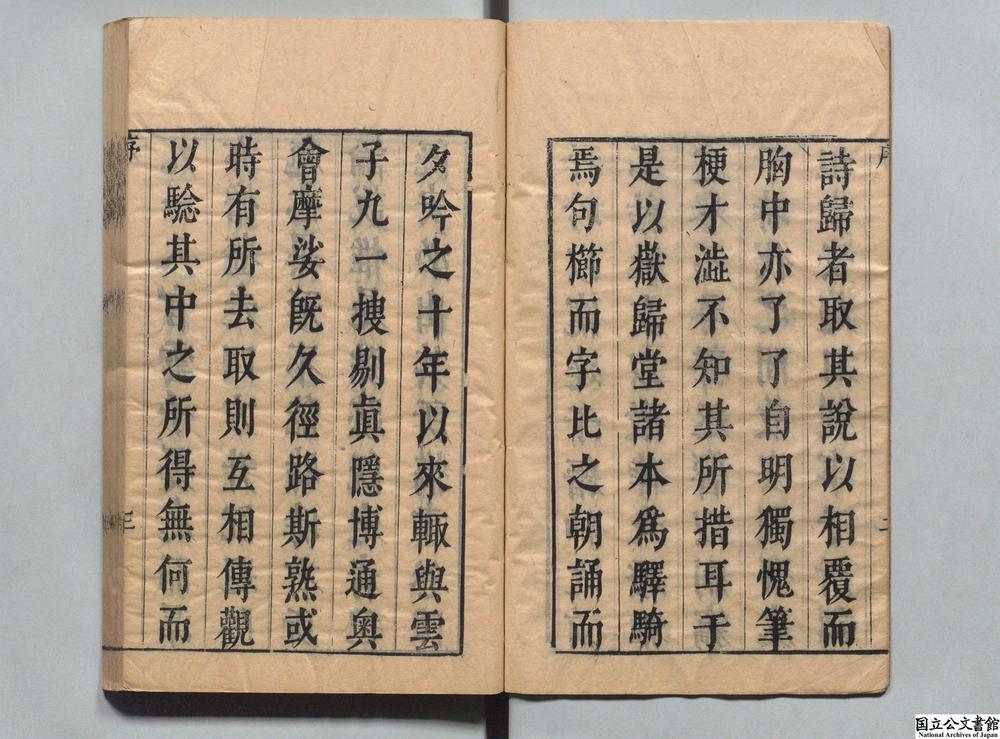 詩歸者取其說以相覆而
胸中亦了了自明獨愧筆
梗才澁不知其所措耳于
是以嶽歸堂諸本爲驛騎
焉句櫛而字比之朝誦而
夕吟之十年以來輙與雲
子九一搜剔眞隱博通奧
會摩娑旣久徑路斯熟或
時有所去取則互相傳觀
以騐其中之所得無何而
序
三
国立公文書館
National Archives of Japan